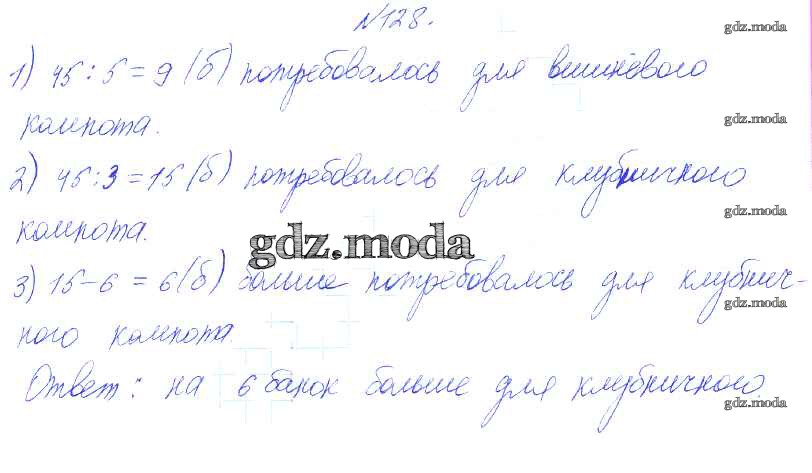 №128.
gdz.moda
1) 45 : 5 = 9 (б) потребовалось для вишнёвого
компота.
gdz.moda
2) 45 : 3 = 15 (б) потребовалось для клубничного
gdz.moda
компота.
gdz.moda
3) 15 - 6 = 6 (б) больше потребовалось для клубнич-
gdz.moda
ного компота.
Ответ: на 6 банок больше для клубничного.
gdz.moda